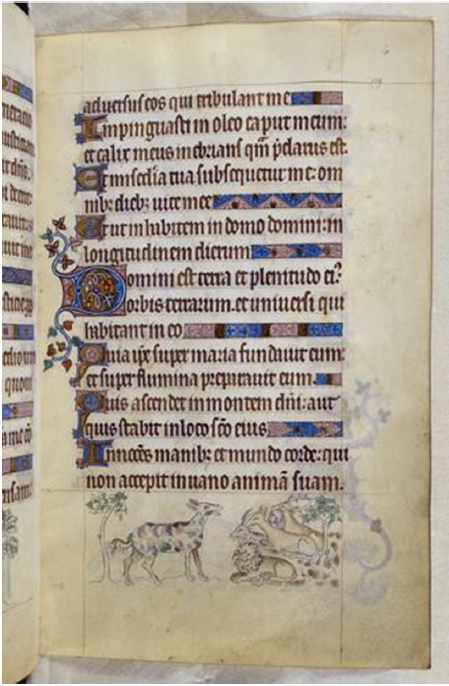 aduersus eos qui tribulant me
Impinguasti in oleo caput meum:
et calix meus inebrians qm pclarus est.
Et misedia tua subsequetur me: om
nibz diebz uite mee
Et ut inhabitem in domo domini: in
longitudinem dierum
Domini est terra et plenitudo ei9
orbis terrarum. et uniuersi qui
habitant in eo
Quia ipe super maria fundauit eum:
et super flumina preparauit eum
Quis ascendet in montem dni: aut
quis stabit in loco sco eius
Innocens manibz et mundo corde: qui
non accepit in uano animã suam.